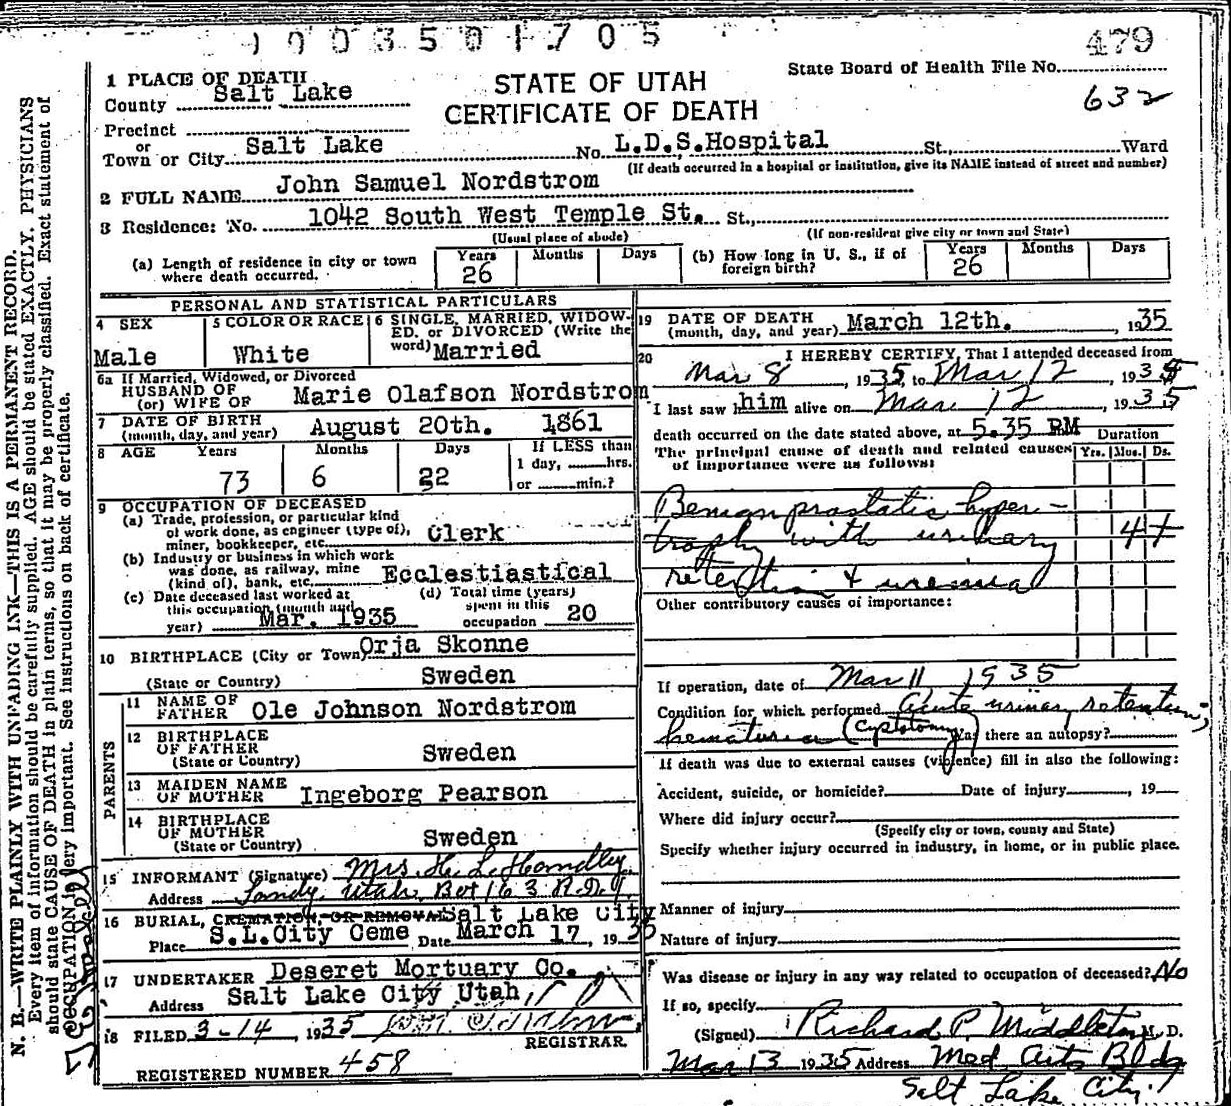 1003501705
479
1 PLACE OF DEATH
County Salt Lake
STATE OF UTAH
CERTIFICATE OF DEATH
State Board of Health File No.
632
Precinct
or
Town or City Salt Lake No. L.D.S.Hospital St., Ward
(If death occurred in a hospital or institution, give its NAME instead of street and number)
2 FULL NAME John Samuel Nordstrom
3 Residence: No. 1042 South West Temple St. St.,
(Usual place of abode) (If non-resident give city or town and State)
(a) Length of residence in city or town where death occurred. Years 26 Months Days
(b) How long in U. S., if of foreign birth? Years 26 Months Days
PERSONAL AND STATISTICAL PARTICULARS
4 SEX Male
5 COLOR OR RACE White
6 SINGLE, MARRIED, WIDOW-
ED, or DIVORCED (Write the
word) Married
6a If Married, Widowed, or Divorced
HUSBAND OF
(or) WIFE OF Marie Olafson Nordstrom
7 DATE OF BIRTH
(month, day, and year) August 20th. 1861
8 AGE Years 73 Months 6 Days 22
If LESS than
1 day, hrs.
or min.?
9 OCCUPATION OF DECEASED
(a) Trade, profession, or particular kind
of work done, as engineer (type of),
miner, bookkeeper, etc. Clerk
(b) Industry or business in which work
was done, as railway, mine
(kind of), bank, etc. Ecclestiastical
(c) Date deceased last worked at
this occupation (month and
year) Mar. 1935
(d) Total time (years)
spent in this
occupation 20
10 BIRTHPLACE (City or Town) Orja Skonne
(State or Country) Sweden
PARENTS
11 NAME OF
FATHER Ole Johnson Nordstrom
12 BIRTHPLACE
OF FATHER
(State or Country) Sweden
13 MAIDEN NAME
OF MOTHER Ingeborg Pearson
14 BIRTHPLACE
OF MOTHER
(State or Country) Sweden
15 INFORMANT (Signature) Mrs. H. L. Handley
Address Sandy, Utah, Box 163 R.D. 1
16 BURIAL, CREMATION, OR REMOVAL Salt Lake City
Place S.L.City Ceme Date March 17, 1935
17 UNDERTAKER Deseret Mortuary Co.
Address Salt Lake City Utah,
18 FILED 3-14, 1935
REGISTRAR.
REGISTERED NUMBER 458
19 DATE OF DEATH
(month, day, and year) March 12th. , 1935
20 I HEREBY CERTIFY, That I attended deceased from
Mar 8, 1935, to Mar 12, 1935
I last saw him alive on Mar 12, 1935
death occurred on the date stated above, at 5.35 PM
The principal cause of death and related causes
of importance were as follows:
Duration
Yrs. Mos. Ds.
Benign prostatic hyper-
trophy with urinary 4+
retention & uremia
Other contributory causes of importance:
If operation, date of Mar 11 1935
Condition for which performed Acute urinary retention;
hematuria (cystotomy) Was there an autopsy?
If death was due to external causes (violence) fill in also the following:
Accident, suicide, or homicide? Date of injury , 19
Where did injury occur?
(Specify city or town, county and State)
Specify whether injury occurred in industry, in home, or in public place.
Manner of injury
Nature of injury
Was disease or injury in any way related to occupation of deceased? No
If so, specify
(Signed) Richard P. Middleton M. D.
Mar 13 1935 Address Med. Arts Bldg
Salt Lake City.
N. B.—WRITE PLAINLY WITH UNFADING INK—THIS IS A PERMANENT RECORD.
Every item of information should be carefully supplied. AGE should be stated EXACTLY. PHYSICIANS
should state CAUSE OF DEATH in plain terms, so that it may be properly classified. Exact statement of
OCCUPATION is very important. See instructions on back of certificate.